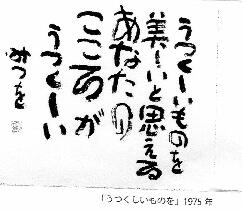 うつくしいものを
美しいと思える
あなたの
こころが
うつくしい
みつを
「うつくしいものを」1975年